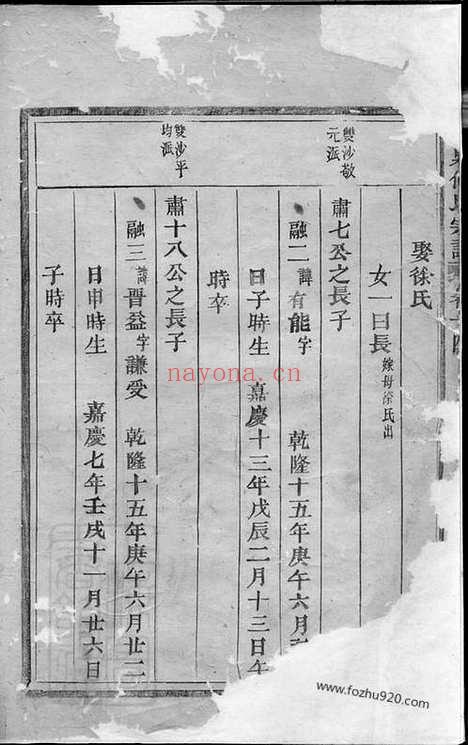 氏宗譜
娶徐氏
女一曰長嫁母徐氏出
雙沙敬
元派
肅七公之長子
融二諱有能字 乾隆十五年庚午六月
日子時生 嘉慶十三年戊辰二月十三日午
時卒
雙沙平
均派
肅十八公之長子
融三諱晋益字謙受 乾隆十五年庚午六月廿二
日申時生 嘉慶七年壬戌十一月廿六日
子時卒
nayona.cn
www.fozhu920.com